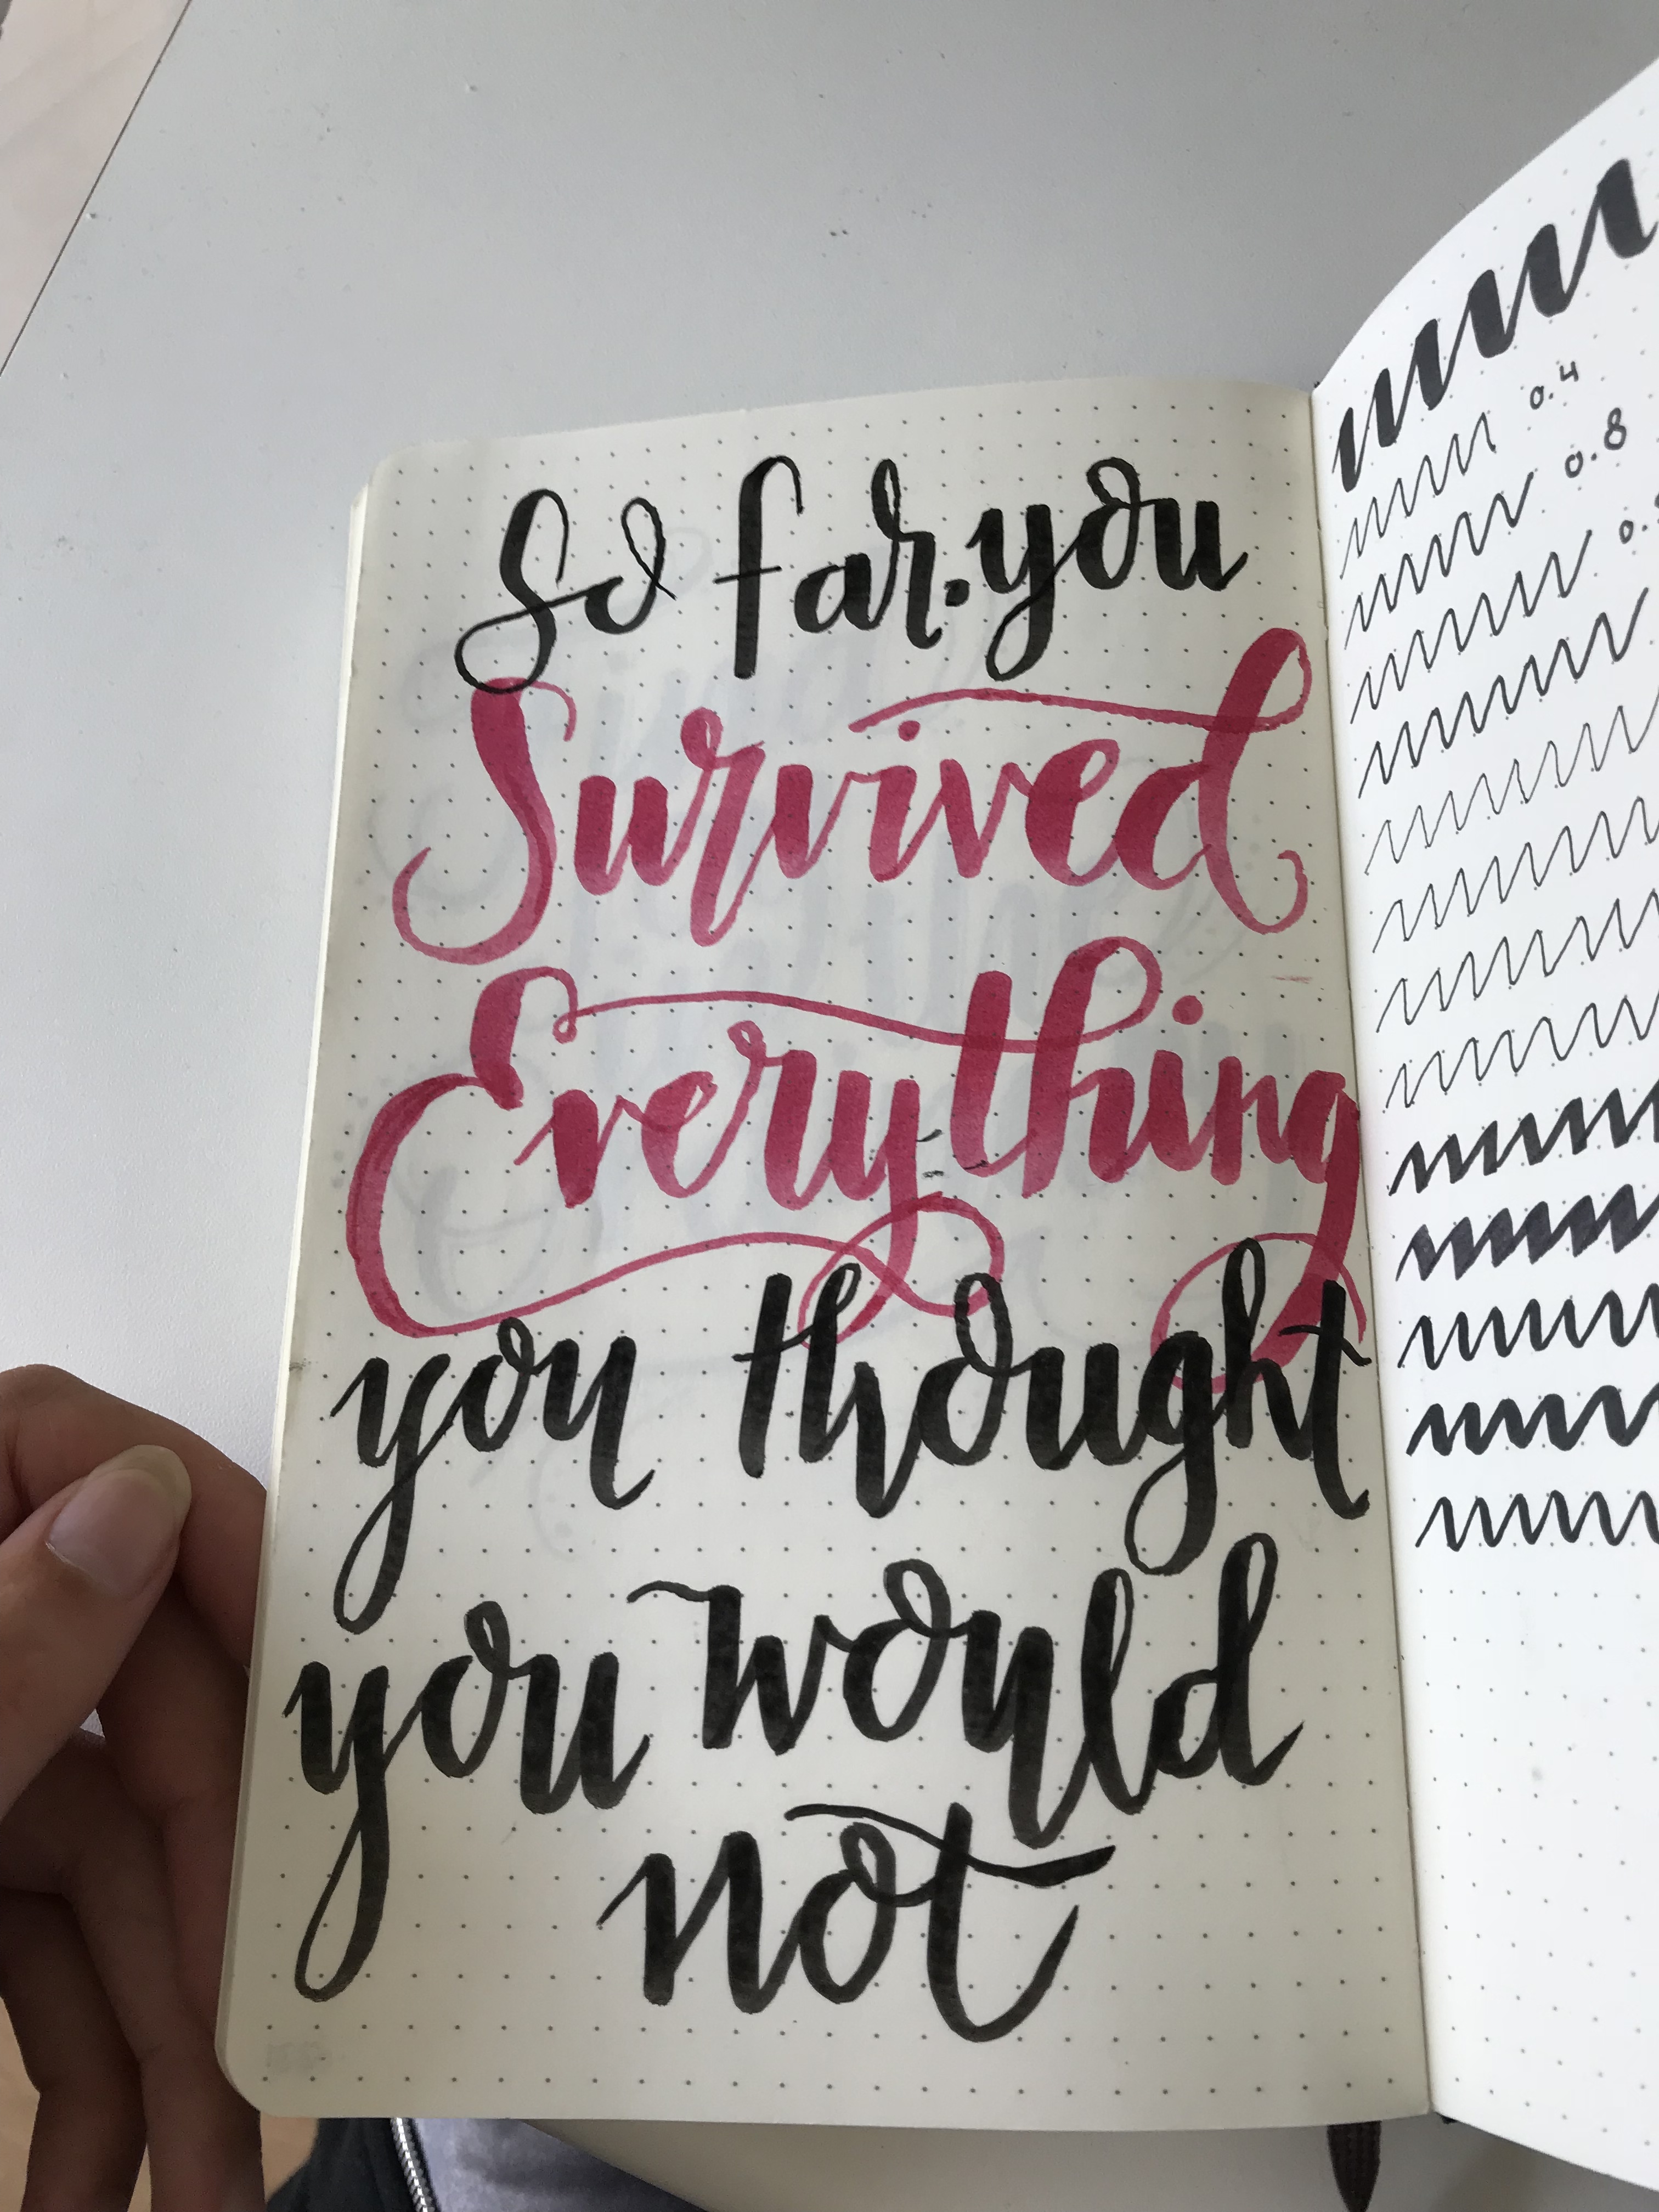 So far. you
Survived
Everything
you thought
you would
not
0.4
0.8